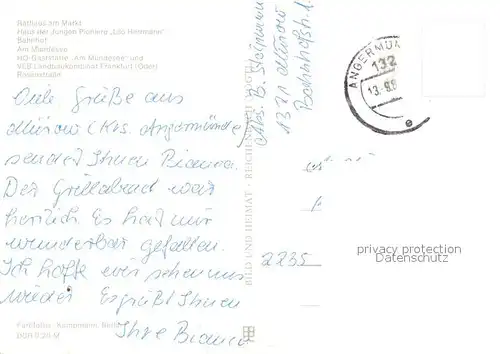 Rathaus am Markt
Haus der Jungen Pioniere „Lilo Herrmann"
Bahnhof
Am Mündesee
HO-Gaststätte „Am Mündesee" und
VEB Landbaukombinat Frankfurt (Oder)
Rosenstraße
Viele Grüße aus
Mürow (Krs. Angermünde)
sendet Ihnen Bianca.
Der Grillabend war
herrlich. Es hat mir
wunderbar gefallen.
Ich hoffe wir sehen uns
wieder. Es grüßt Ihnen
Ihre Bianca
Farbfotos: Kampmann, Berlin
BILD UND HEIMAT · REICHENBACH (VOGTL)
Abs. B.
1321 Mürow
Bahnhofstr.
ANGERMÜN
132
13.-8.8
e
2235
privacy protection
Datenschutz